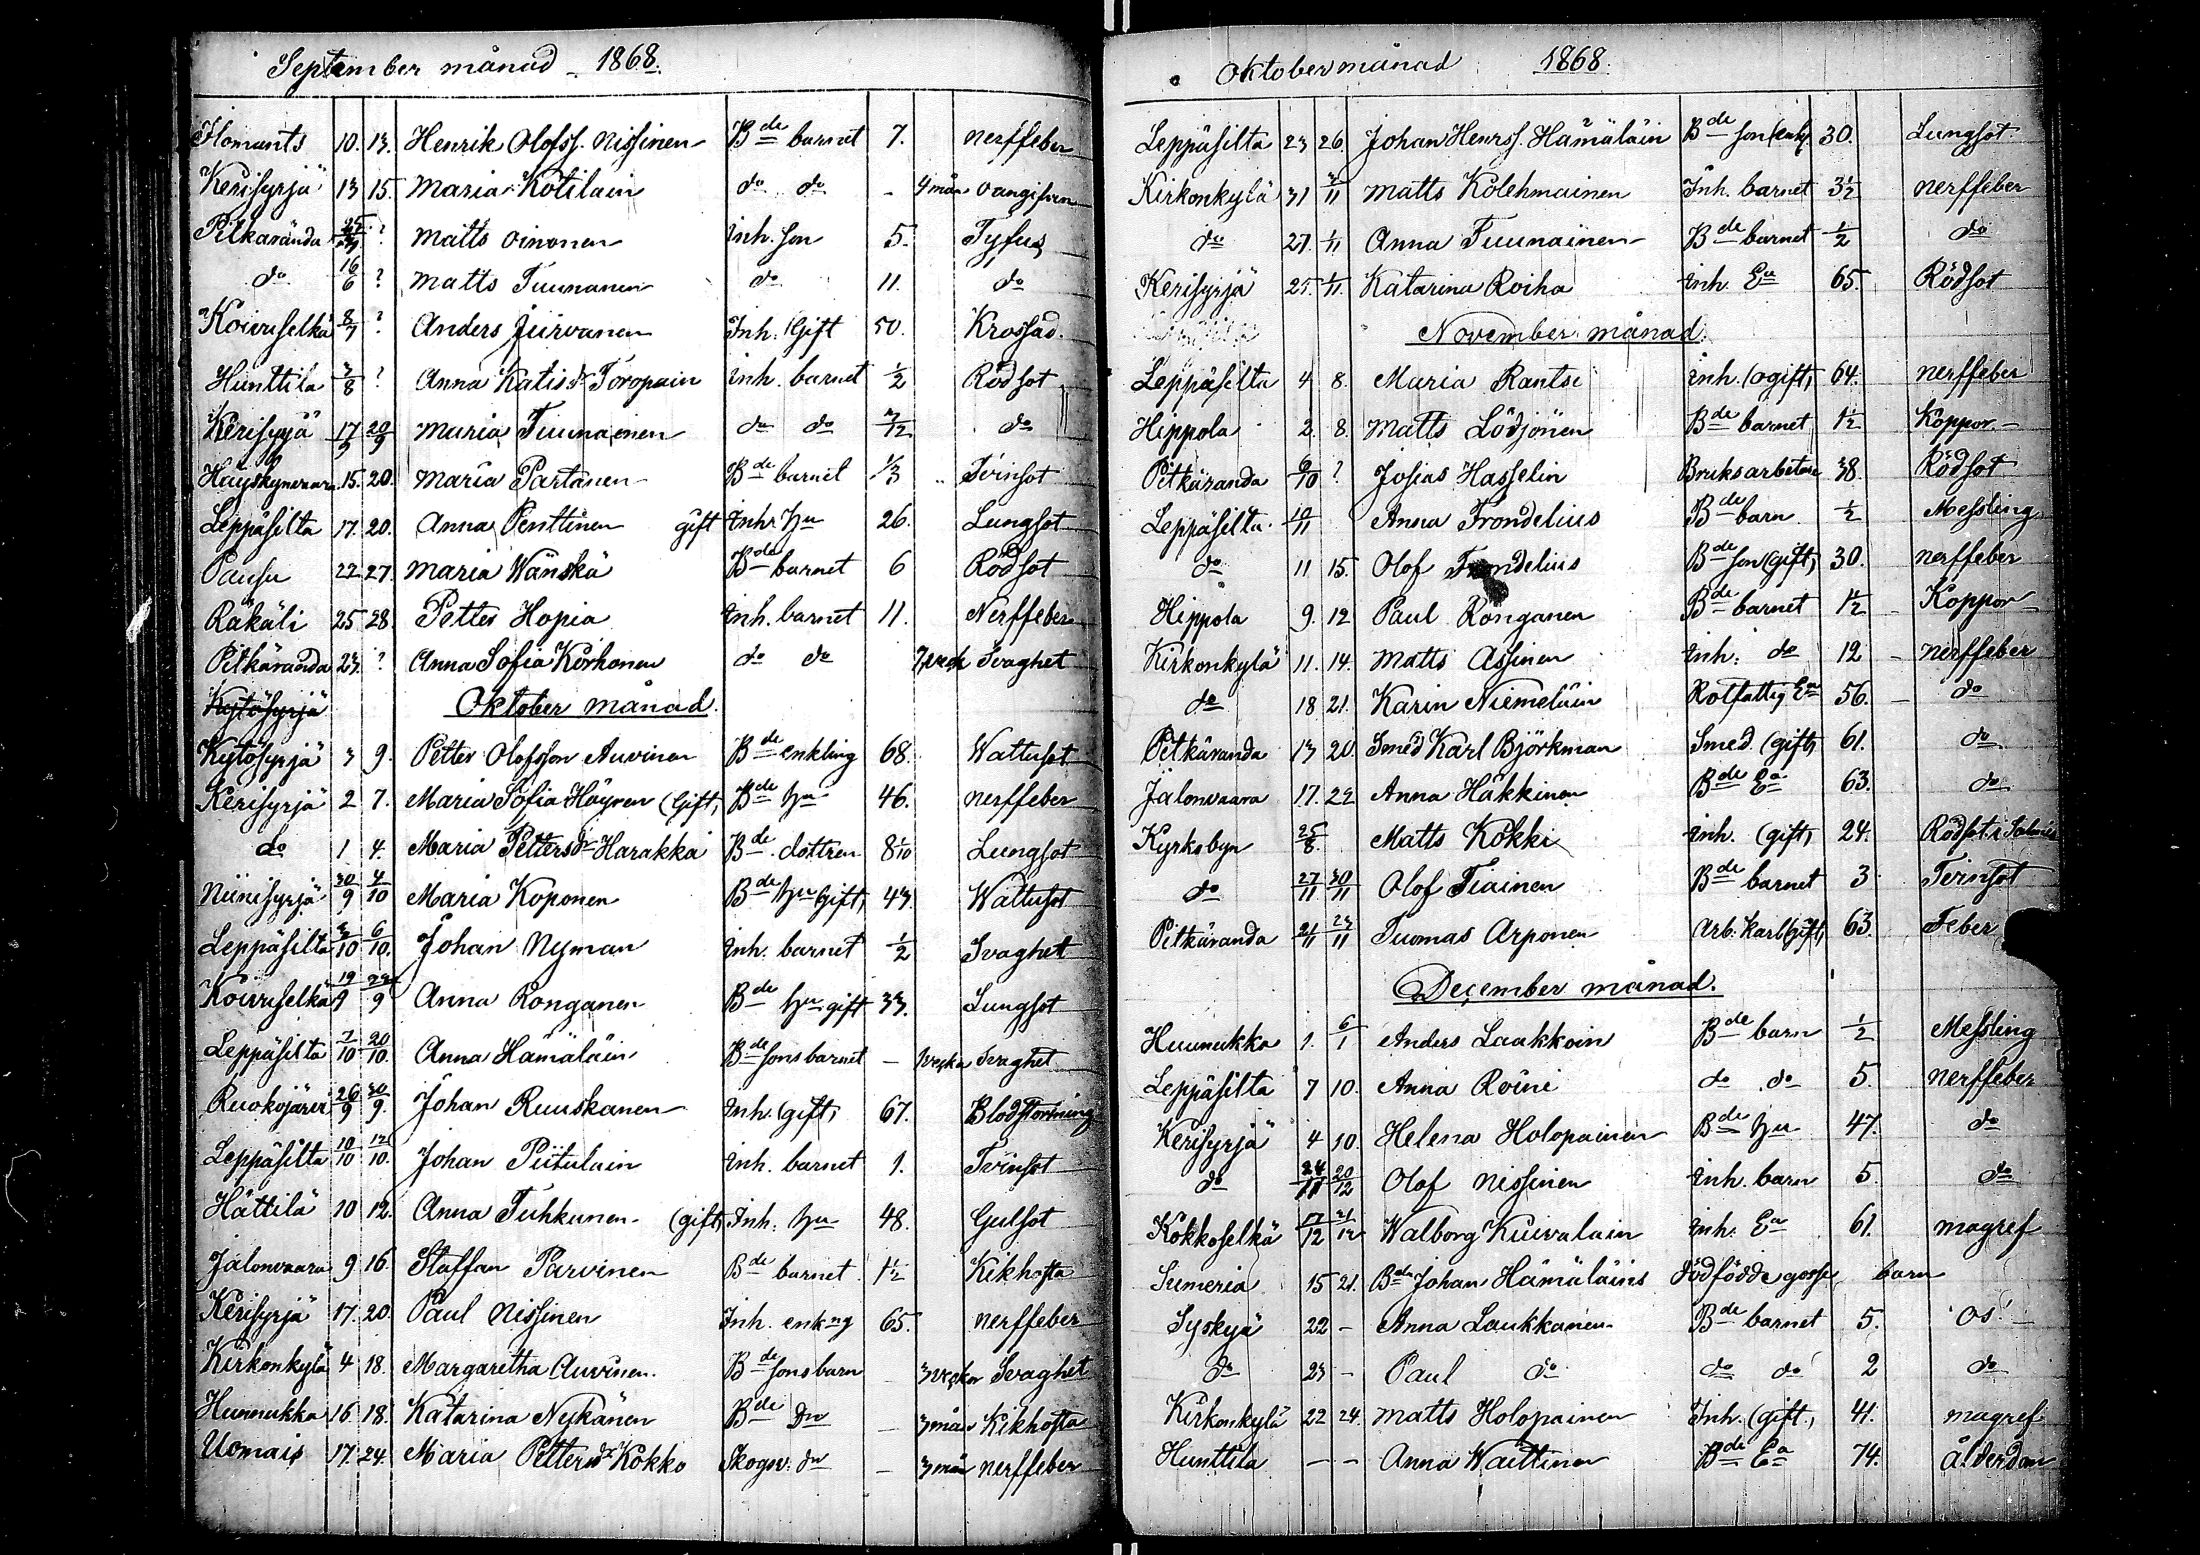 September månad 1868.
Ilomants 10. 13. Henrik Olofss. Nissinen Bde barnet 7. nerffeber
Kerisyrjä 13 15. Maria Kotilain do do - 4 mån oangifven
Pitkäranda ? Matts Oinonen inh. son 5. Tyfus
do 16/6 ? Matts Tuunanen do 11. do
Koivuselkä 8/7 ? Anders Jurvanen Inh. Gift 50. Krossad.
Hunttila 3/8 ? Anna Katisdr Toropain inh. barnet 1/2 Rödsot
Kerisyrjä 17/9 20/9 Maria Tuunainen do do 7/12 do
15. 20. Maria Partanen Bde barnet 1/3 Tvinsot
Leppäsilta 17. 20. Anna Penttinen gift Inhs hu 26. Lungsot
Pausu 22 27. Maria Wänskä Bde barnet 6 Rödsot
Räkäli 25 28. Petter Hopia inh. barnet 11. Nerffeber
Pitkäranda 23. ? Anna Sofia Korhonen do do 7 veck Svaghet
Kytösyrjä
Oktober månad.
Kytösyrjä 3 9. Petter Olofsson Auvinen Bde enkling 68. Wattusot
Kerisyrjä 2 7. Maria Sofia Häyren (Gift) Bde hu 46. nerffeber
do 1 4. Maria Pettersdr Harakka Bde dottren 8 1/10 Lungsot
Niinisyrjä 30/9 4/10 Maria Koponen Bde hu (gift) 43. Wattusot
Leppäsilta 3/10 6/10. Johan Nyman inh. barnet 1/2 Svaghet
Koivuselkä 19/9 22/9 Anna Ronganen Bde hu gift 33. Lungsot
Leppäsilta 7/10 20/10. Anna Hämäläin Bde sonsbarnet - 1 vecka Svaghet
Ruokojärvi 26/9 30/9. Johan Ruuskanen Inh. (gift) 67. Blodstörtning
Leppäsilta 10/10 12/10. Johan Piitulain inh. barnet 1. Tvinsot
Hättilä 10 12. Anna Tuhkunen (gift) Inh. hu 48. Gulsot
Jalonvaara 9 16. Staffan Parvinen Bde barnet 1 1/2 Kikhosta
Kerisyrjä 17. 20. Paul Nissinen Inh. enkng 65. nerffeber
Kirkonkylä 4 18. Margaretha Auvinen. Bde sonsbarn 3 veckor Svaghet
Huunukka 16. 18. Katarina Nykänen Bde dr - 3 mån Kikhosta
Uomais 17. 24. Maria Pettersdr Kokko Skogsv. dr - 3 mån nerffeber
Oktober månad 1868.
Leppäsilta 23 26. Johan Henrss. Hämäläin Bde son (enkl. 30. Lungsot
Kirkonkylä 31 3/11 Matts Kolehmainen Inh. barnet 3 1/2 nerffeber
do 27. 1/11 Anna Tuunainen Bde barnet 1/2 do
Kerisyrjä 25. 1/11. Katarina Roiha inh. Ea 65. Rödsot
November månad.
Leppäsilta 4 8. Maria Rantsi inh. (ogift) 64. nerffeber
Hippola 2. 8. Matts Lödjönen Bde barnet 1 1/2 Koppor.
Pitkäranda 6/10 ? Josias Hasselin Bruksarbetare 38. Rödsot
Leppäsilta 10/11 Anna Trondelius Bde barn 1/2 Messling
do 11 15. Olof Trondelius Bde son (gift) 30. nerffeber
Hippola 9. 12 Paul Ronganen Bde barnet 1 1/2 Koppor
Kirkonkylä 11. 14. Matts Assinen inh. do 12 nerffeber
do 18 21. Karin Niemeläin Rotfattig Ea 56. do
Pitkäranda 13 20. Smed Karl Björkman Smed. (gift) 61. do
Jalonvaara 17. 22 Anna Häkkinen Bde Ea 63. do
Kyrkobyn 25/8. Matts Kokki inh. (gift) 24. Rödsot i
do 27/11. 30/11 Olof Tiainen Bde barnet 3 Tvinsot
Pitkäranda 21/11 23/11 Tuomas Arponen Arb. karl (gift) 63. Feber
December månad.
Huunukka 1. 6/1 Anders Laakkoin Bde barn 1/2 Messling
Leppäsilta 7 10. Anna Roini do do 5. nerffeber
Kerisyrjä 4 10. Helena Holopainen Bde hu 47. do
do 24/11 20/12 Olof Nissinen inh. barn 5. do
Kokkoselkä 17/12 21/12 Walborg Kuivalain inh. Ea 61. magref
Sumeria 15 21. Bde Johan Hämäläins dödfödde gosse barn
Syskyä 22 - Anna Laukkanen Bde barnet 5. os!
do 23 - Paul do do do 2 do
Kirkonkylä 22 24. Matts Holopainen Inh. (gift) 41. magref
Hunttila - - Anna Waittinen Bde Ea 74. Ålderdom